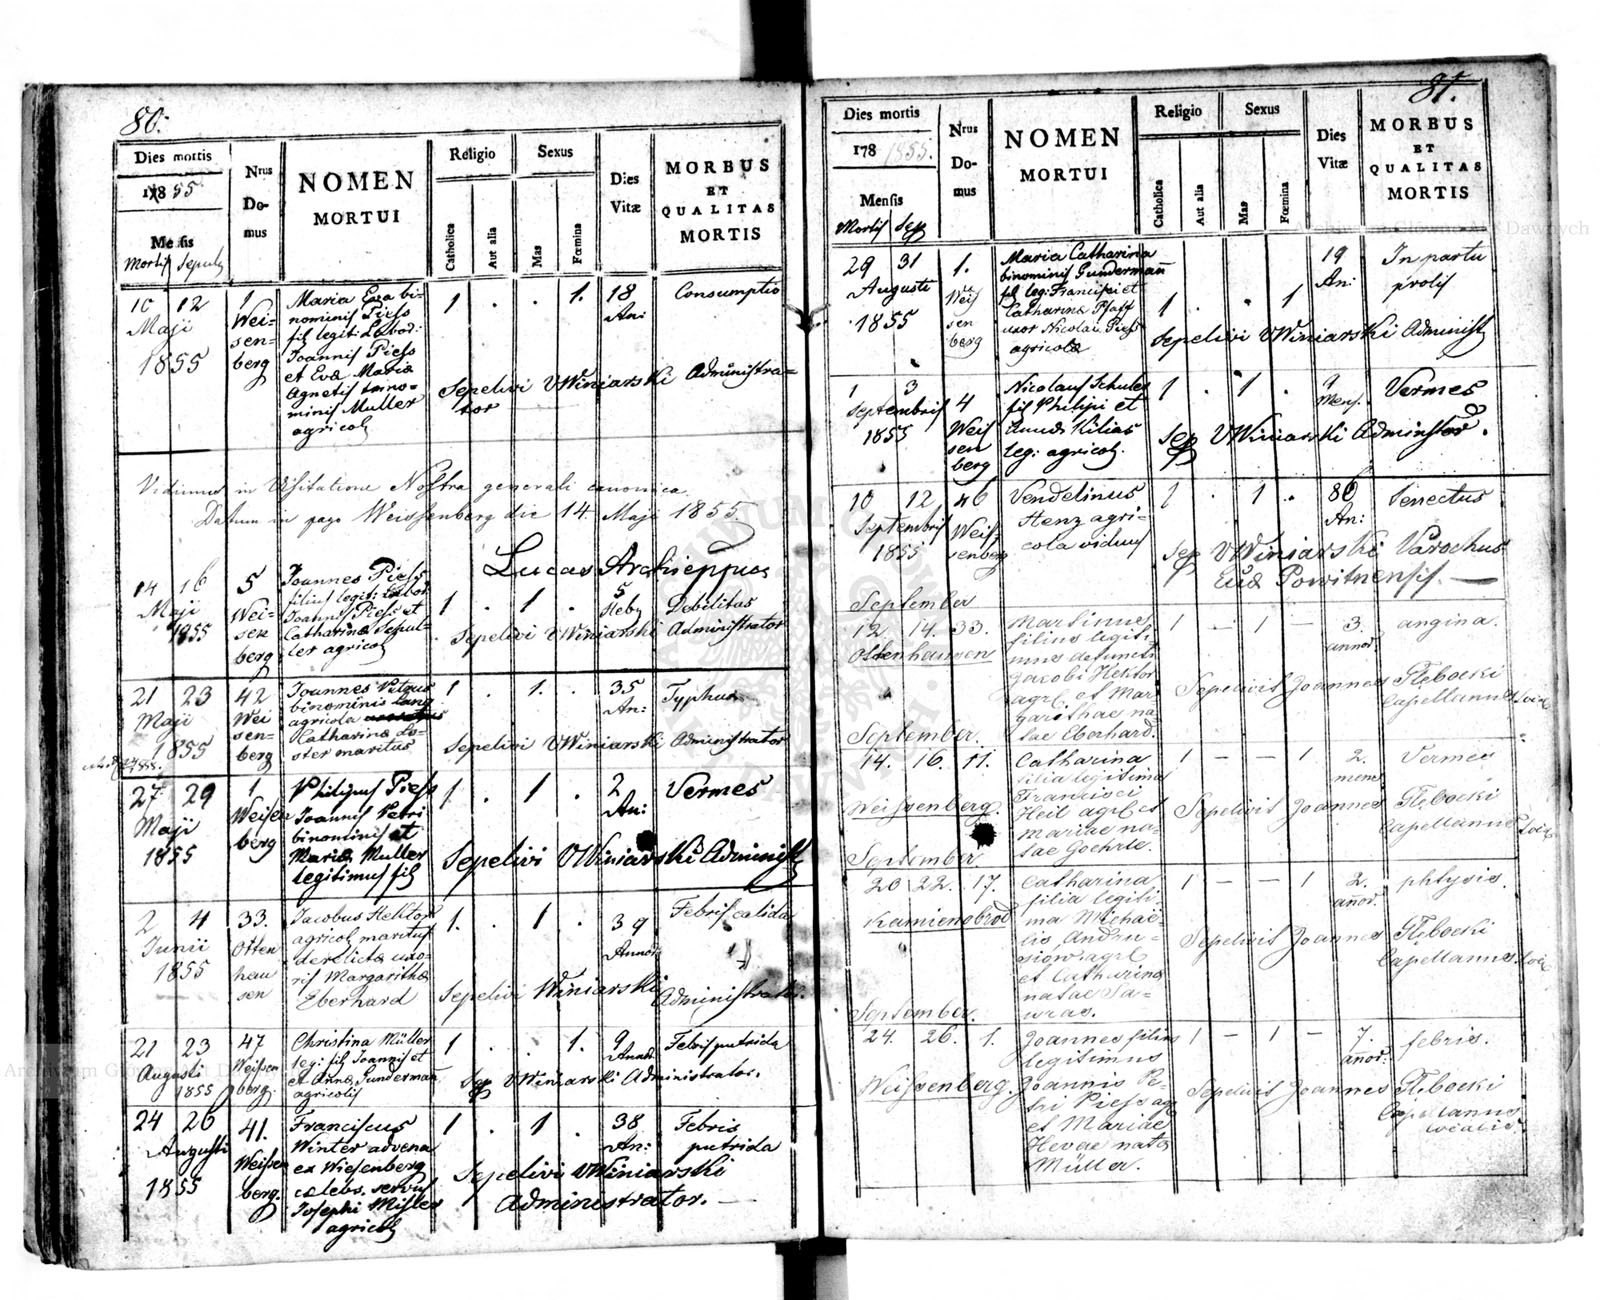 80.
Dies mortis
1855
Mensis
Mortis Sepult
Nrus
Do-
mus
NOMEN
MORTUI
Religio
Catholica
Aut alia
Sexus
Mas
Fœmina
Dies
Vitæ
MORBUS
ET
QUALITAS
MORTIS
10 12
Maji
1855
1
Wei-
sen-
berg
Maria Eva bi-
nominis Piess
fil legit: Labod:
Joannis Piess
et Evæ Mariæ
Agnetis trino-
minis Muller
agricol
1 . . 1. 18
An:
Consumptio
Sepelivi VWiniarski Administra-
tor
Vidimus in Visitatione Nostra generali canonica
Datum in pago Weissenberg die 14. Maji 1855.
Lucas Archieppus
14 16
Maji
1855
5
Wei-
sen
berg
Joannes Piess
filius legit:
Joannis Piess et
Catharinæ Sepul-
ler agricol
1 . 1 . 5
Heby
Debilitas
Sepelivi VWiniarski Administrator
21 23
Maji
1855
42
Wei
sen-
berg
Joannes Vitgus
binominis Lang
agricola
Catharinæ Lo-
ster maritus
1 . 1. . 35
An:
Typhus
Sepelivi VWiniarski Administrator
27 29
Maji
1855
1
Weisen
berg
Philipus Piess
Joannis Petri
binominis et
Mariæ Muller
legitimus fil
1 . 1 . 2
An:
Vermes
Sepelivi VWiniarski Administ
2 4
Junii
1855
33.
Otten
hau
sen
Jacobus Hektor
agricol maritus
derelictæ uxo-
ris Margarithæ
Eberhard
1. . 1 . 39
Annor
Febris calida
Sepelivi Winiarski Administrator.
21 23
Augusti
1855
47
Weissen
berg.
Christina Müller
leg: fil Joannis et
et Annæ Gunderman
agricolis
1 . . 1. 9
Annor
Febris putrida
Sep VWiniarski Administrator.
24 26
Augusti
1855
41.
Weissen
berg.
Franciscus
Winter advena
ex Wiesenberg
cælebs. servus
Josephi Misler
agricol
1 . 1 . 38
An:
Febris
putrida
Sepelivi VWiniarski
Administrator. —
81.
Dies mortis
178 1855.
Mensis
Mortis Sep
Nrus
Do-
mus
NOMEN
MORTUI
Religio
Catholica
Aut alia
Sexus
Mas
Fœmina
Dies
Vitæ
MORBUS
ET
QUALITAS
MORTIS
29 31
Augusti
1855
1.
Weis
sen
berg
Maria Catharina
binominis Gunderman
fil leg: Francisci et
Catharinæ Pfaff
uxor Nicolai Piess
agricolæ
1 . . 1 19
An:
In partu
prolis
Sepelivi VWiniarski Administ
1 3
Septembris
1855
4
Weis
sen
berg
Nicolaus Schules
fil Philipi et
Annæ Kilias
leg: agricol.
1 . 1 . 9
Mens.
Vermes
Sep VWiniarski Administor.
10 12
Septembris
1855
46
Weis
senberg
Vendelinus
Henz agri-
cola viduus
1 . 1 . 86
An:
Senectus
Sep VWiniarski Parochus
Eud Powitnensis. —
September
12. 14. 33.
Ottenhausen
Martinus
filius legiti-
mus defuncti
Jacobi Hektor
agrl. et Mar
garithae na-
tae Eberhard.
1 — 1 — 3.
annor.
angina.
Sepelivit Joannes Głębocki
Capellanus Loci
September.
14. 16. 11.
Weissenberg.
Catharina
filia legitima
Francisci
Heil agrl. et
Mariae na-
tae Goehrle.
1 — — 1 2.
mens
Vermes
Sepelivit Joannes Głębocki
Capellanus Loci.
September.
20 22. 17.
Kamienobrod
Catharina
filia legiti-
ma Michaë-
lis Andru-
siow agrl.
et Catharinæ
natae Sa-
wras.
1 — — 1 2.
añor.
phtysis.
Sepelivit Joannes Głębocki
Capellanus Loci
September.
24. 26. 1.
Weissenberg.
Joannes filius
legitimus
Joannis Pe-
tri Piess agr
et Mariae
Hevae nata
Müller.
1 — 1 — 7.
añor.
febris.
Sepelivit Joannes Głębocki
Capellanus
localis.